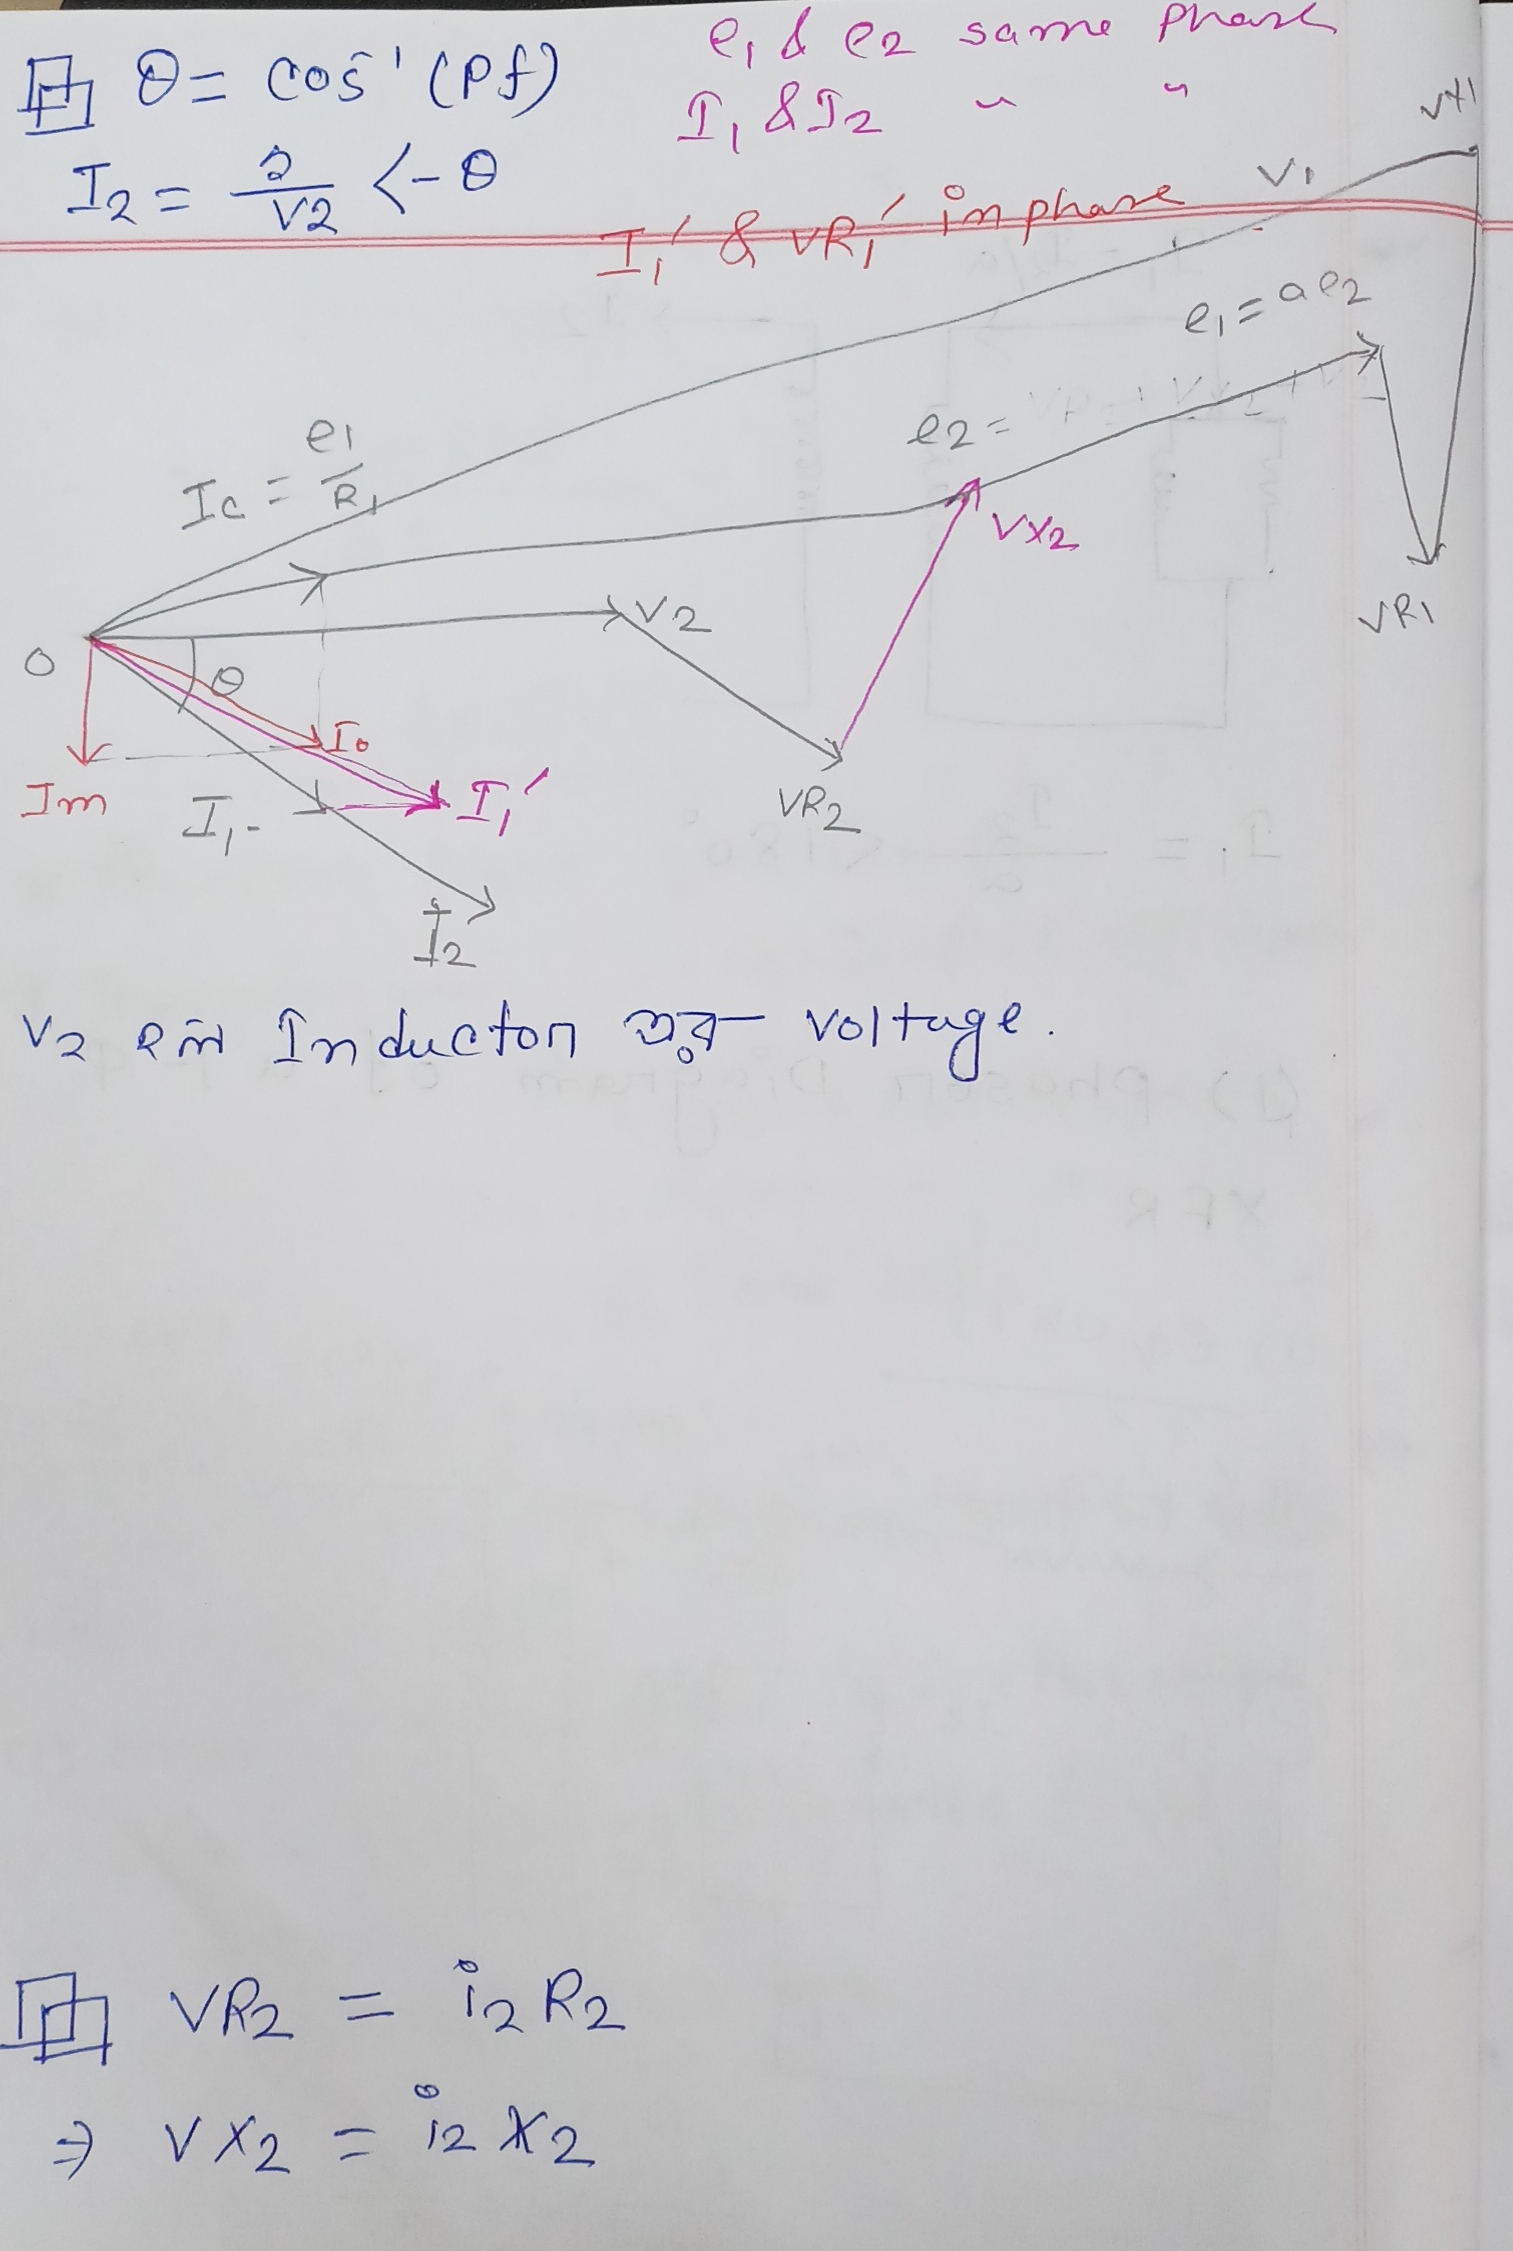 θ = cos⁻¹ (Pf)
e₁ & e₂ same phase
I₁ & I₂ " "
I₂ = 2/V2 <-θ
I₁′ & VR₁′ in phase
VX1
V1
e₁ = ae₂
e₂ =
Ic = e1/R1
VX2
V2
VR1
O
θ
I₀
Im
I₁
I₁′
VR2
I2
V2 Inductor voltage.
VR2 = i2 R2
⇒ VX2 = i2 X2